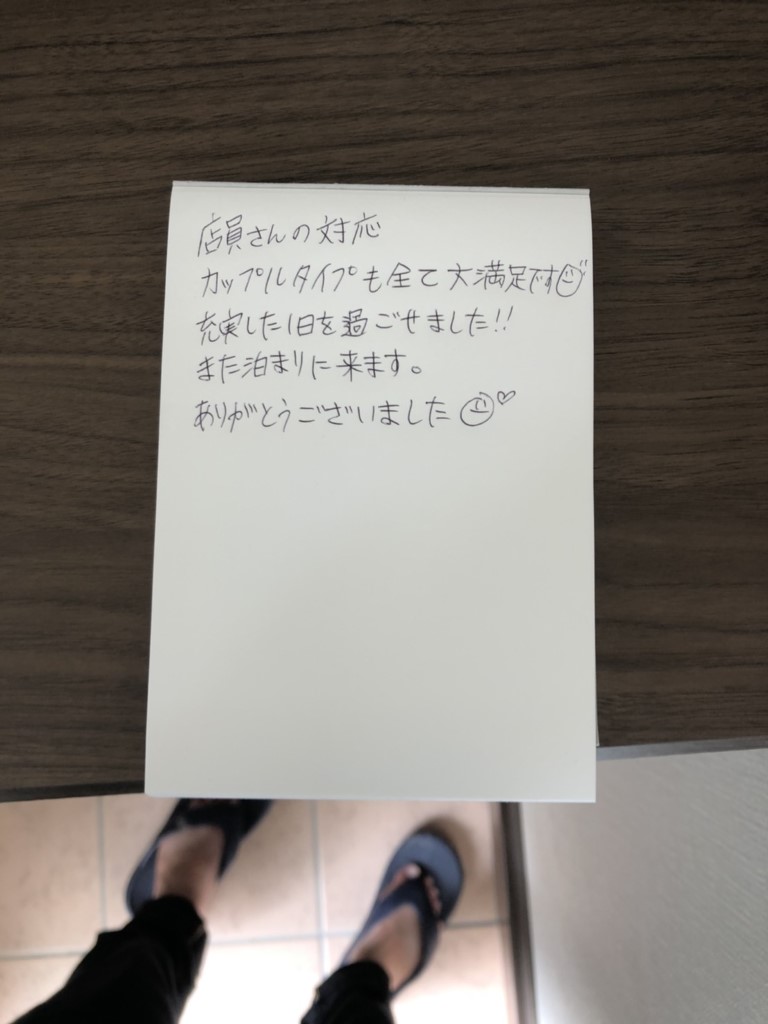 店員さんの対応
カップルタイプも全て大満足です
充実した1日を過ごせました!!
また泊まりに来ます。
ありがとうございました